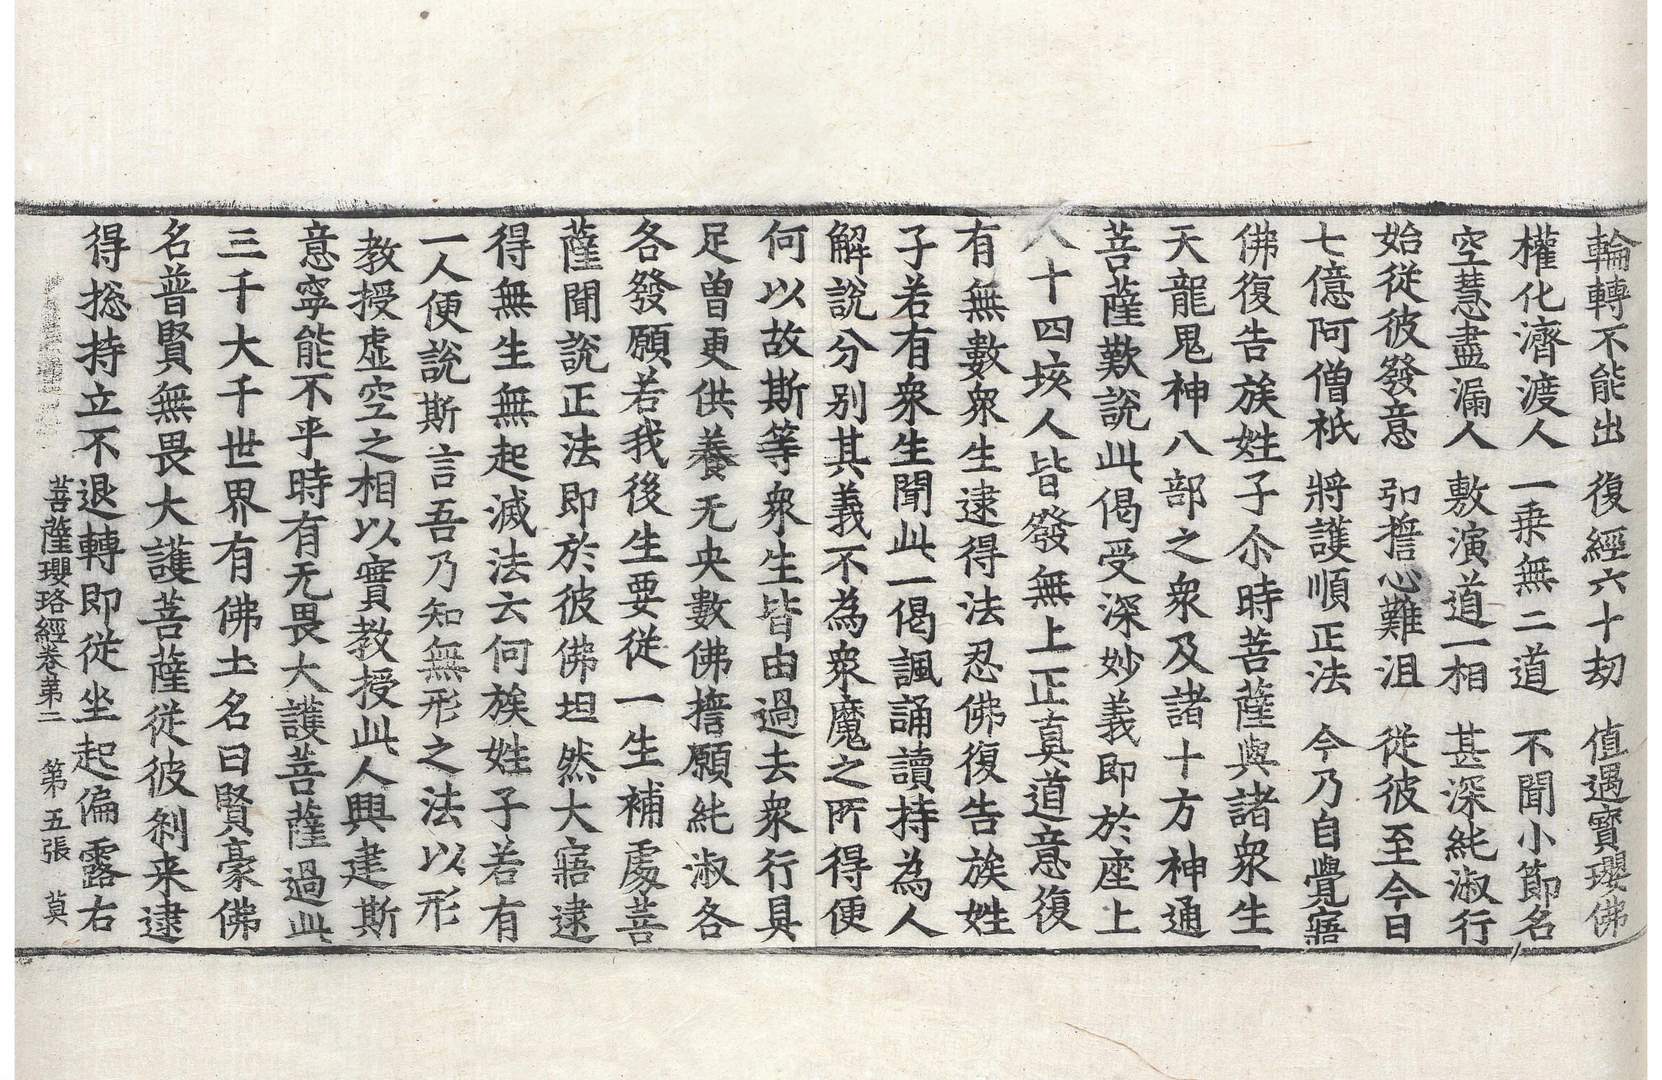 輪轉不能出　復經六十劫　值遇寶瓔佛
權化濟渡人　一乗無二道　不聞小節名
空慧盡漏人　敷演道一相　甚深純淑行
始從彼發意　弘擔心難沮　從彼至今日
七億阿僧祇　將護順正法　今乃自覺寤
佛復告族姓子尒時菩薩與諸衆生
天龍鬼神八部之衆及諸十方神通
菩薩歎說此偈受深妙義即於座上
八十四垓人皆發無上正真道意復
有無數衆生逮得法忍佛復告族姓
子若有衆生聞此一偈諷誦讀持為人
解說分別其義不為衆魔之所得便
何以故斯等衆生皆由過去衆行具
足曽更供養无央數佛擔願純淑各
各發願若我後生要從一生補處菩
薩聞說正法即於彼佛坦然大寤逮
得無生無起滅法云何族姓子若有
一人便說斯言吾乃知無形之法以形
教授虛空之相以實教授此人興建斯
意寧能不乎時有无畏大護菩薩過此
三千大千世界有佛土名曰賢豪佛
名普賢無畏大護菩薩從彼剎来逮
得捴持立不退轉即從坐起偏露右
菩薩瓔珞經卷苐二　第五張　莫